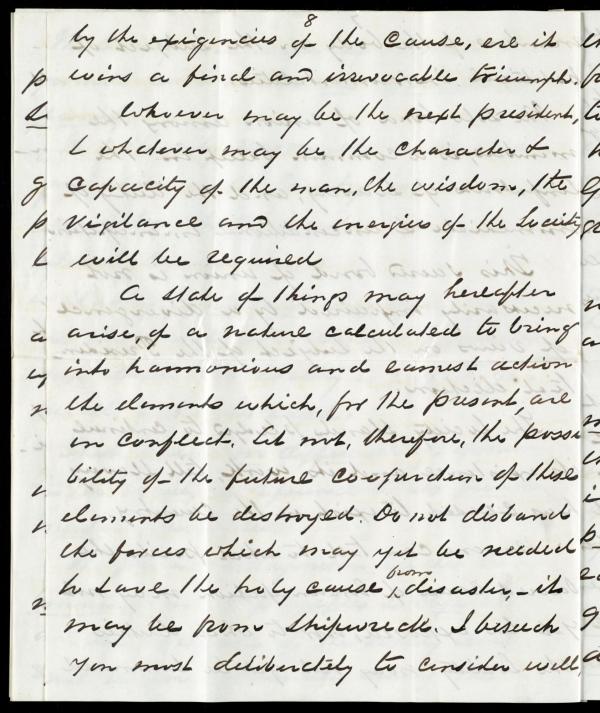 8
by the exigencies of the cause, ere it
wins a final and irrevocable triumph.
Whoever may be the next president,
& whatever may be the character &
capacity of the man, the wisdom, the
vigilance and the energies of the Society
will be required
A state of things may hereafter
arise, of a nature calculated to bring
into harmonious and earnest action
the elements which, for the present, are
in conflict. Let not, therefore, the possi
bility of the future co-operation of these
elements be destroyed. Do not disband
the forces which may yet be needed
to save the holy cause from disaster, - it
may be from shipwreck. I beseech
you most deliberately to consider well,